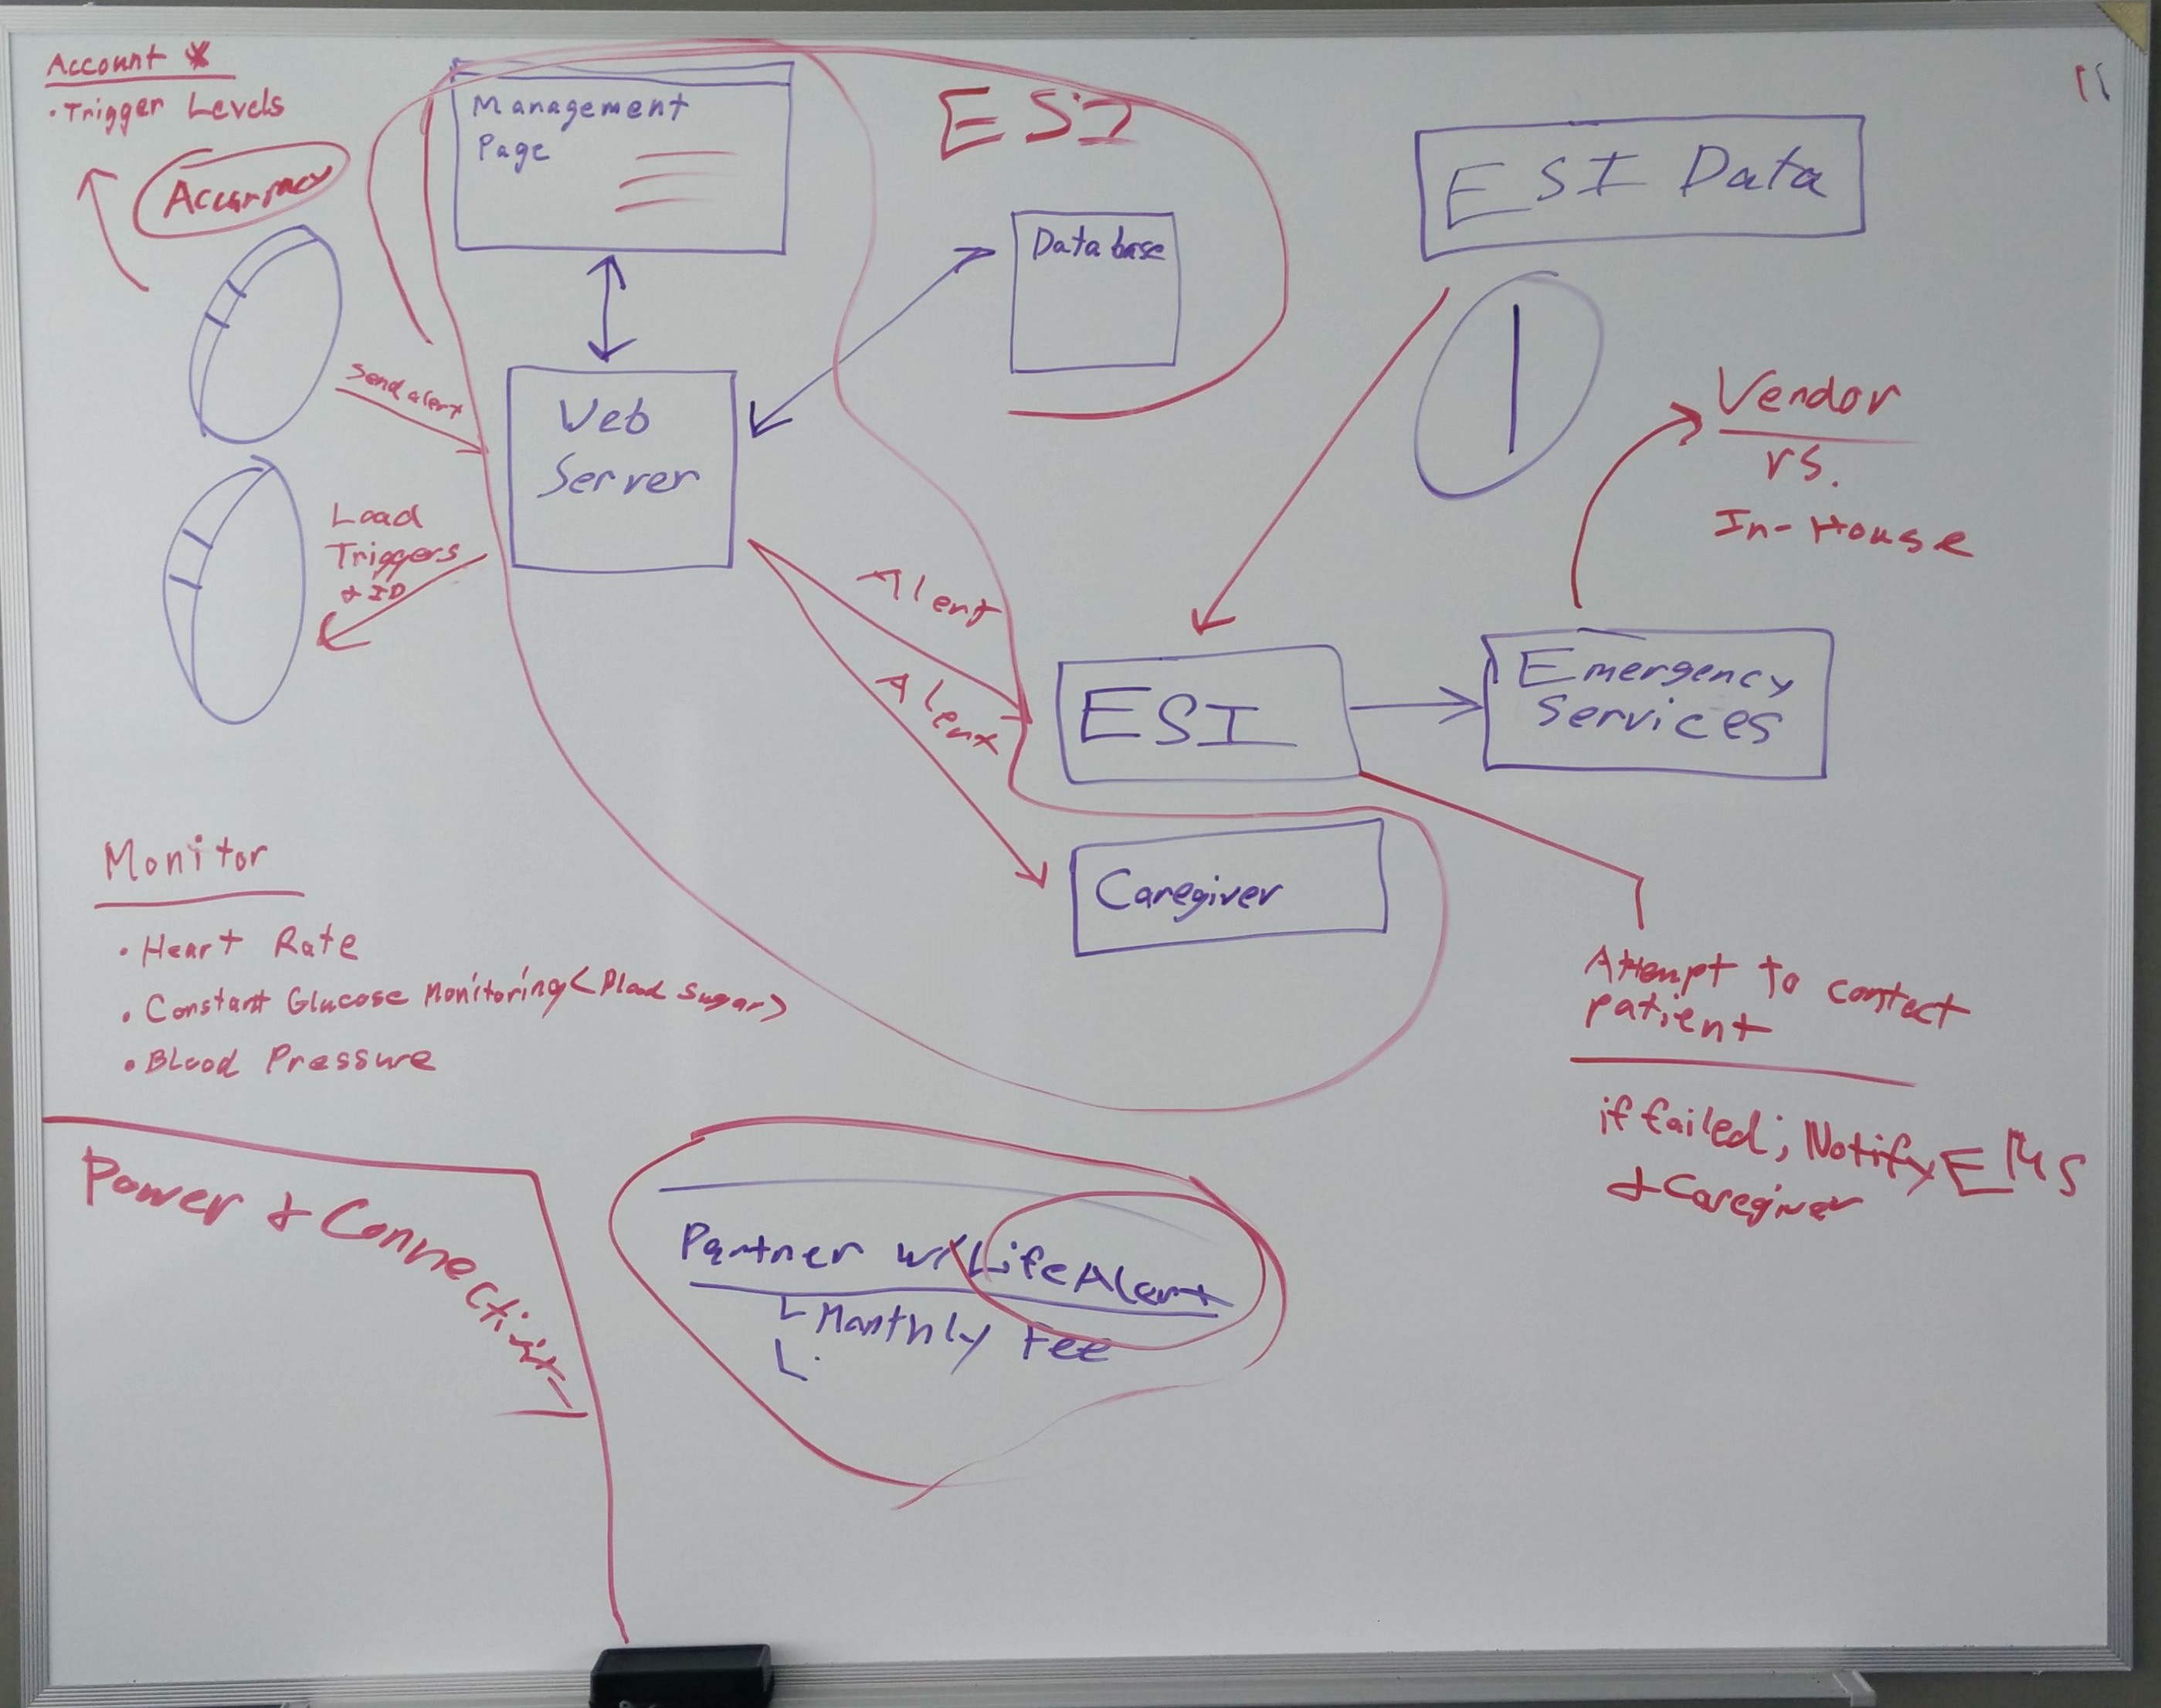 Account *
· Trigger Levels
Accurracy
Management
Page
ESI
Database
ESI Data
Send alert
Web
Server
Load
Triggers
& ID
Vendor
vs.
In-House
Alert
Alert
ESI
Emergency
Services
Caregiver
Monitor
· Heart Rate
· Constant Glucose Monitoring (Blood Sugar)
· Blood Pressure
Attempt to contact
patient
if failed; Notify EMS
& Caregiver
Power & Connectivity
Partner w/ LifeAlert
Monthly Fee